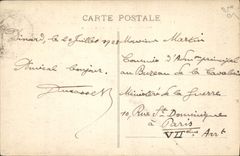 CARTE POSTALE
Dinard, le 20 Juillet 192
Amical bonjour.
Monsieur Martin
Commis d' principal
au Bureau de la Cavalerie
Ministère de la Guerre
10 Rue St Dominique
à Paris
VIIème Arrt